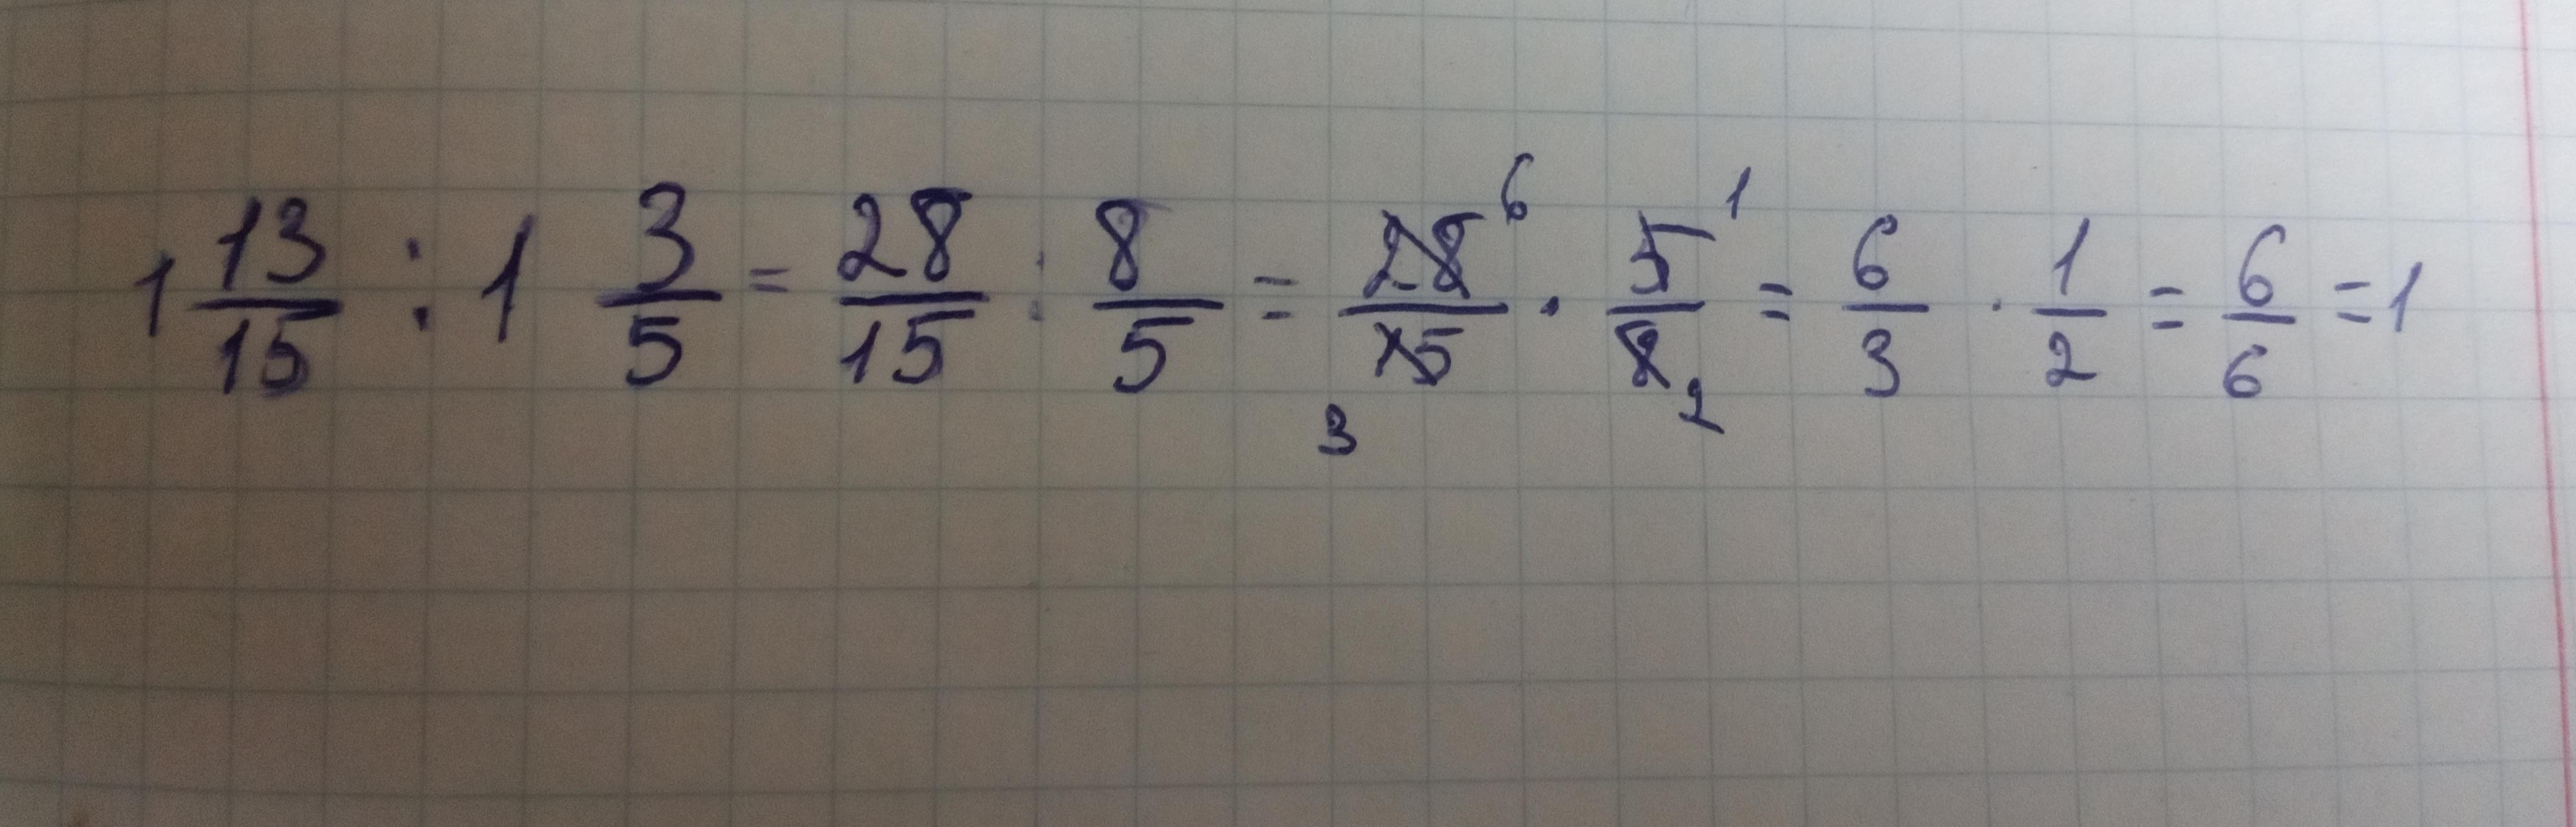 1 13/15 : 1 3/5 = 28/15 : 8/5 = 28⁶/15₃ · 5¹/8₂ = 6/3 · 1/2 = 6/6 = 1